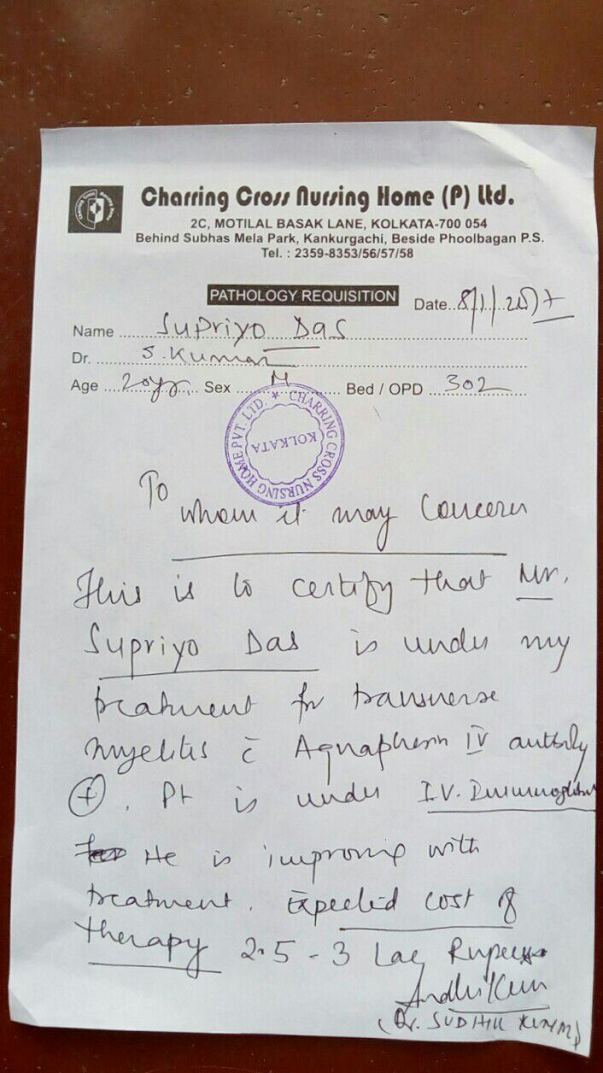 Charring Cross Nursing Home (P) Ltd.
2C, MOTILAL BASAK LANE, KOLKATA-700 054
Behind Subhas Mela Park, Kankurgachi, Beside Phoolbagan P.S.
Tel. : 2359-8353/56/57/58
PATHOLOGY REQUISITION Date..8/1/2017
Name Supriyo Das
Dr. S. Kumar
Age 20yrs Sex M Bed / OPD 302
CHARRING CROSS NURSING HOME PVT. LTD. ★
KOLKATA
To
whom it may concern
This is to certify that Mr.
Supriyo Das is under my
treatment for transverse
myelitis c̄ Aquaphorin IV antibody
(+). Pt is under I.V. Immunoglobin
He is improving with
treatment. Expected cost of
therapy 2.5 - 3 Lac Rupees
(Dr. SUDHIR KUMAR)